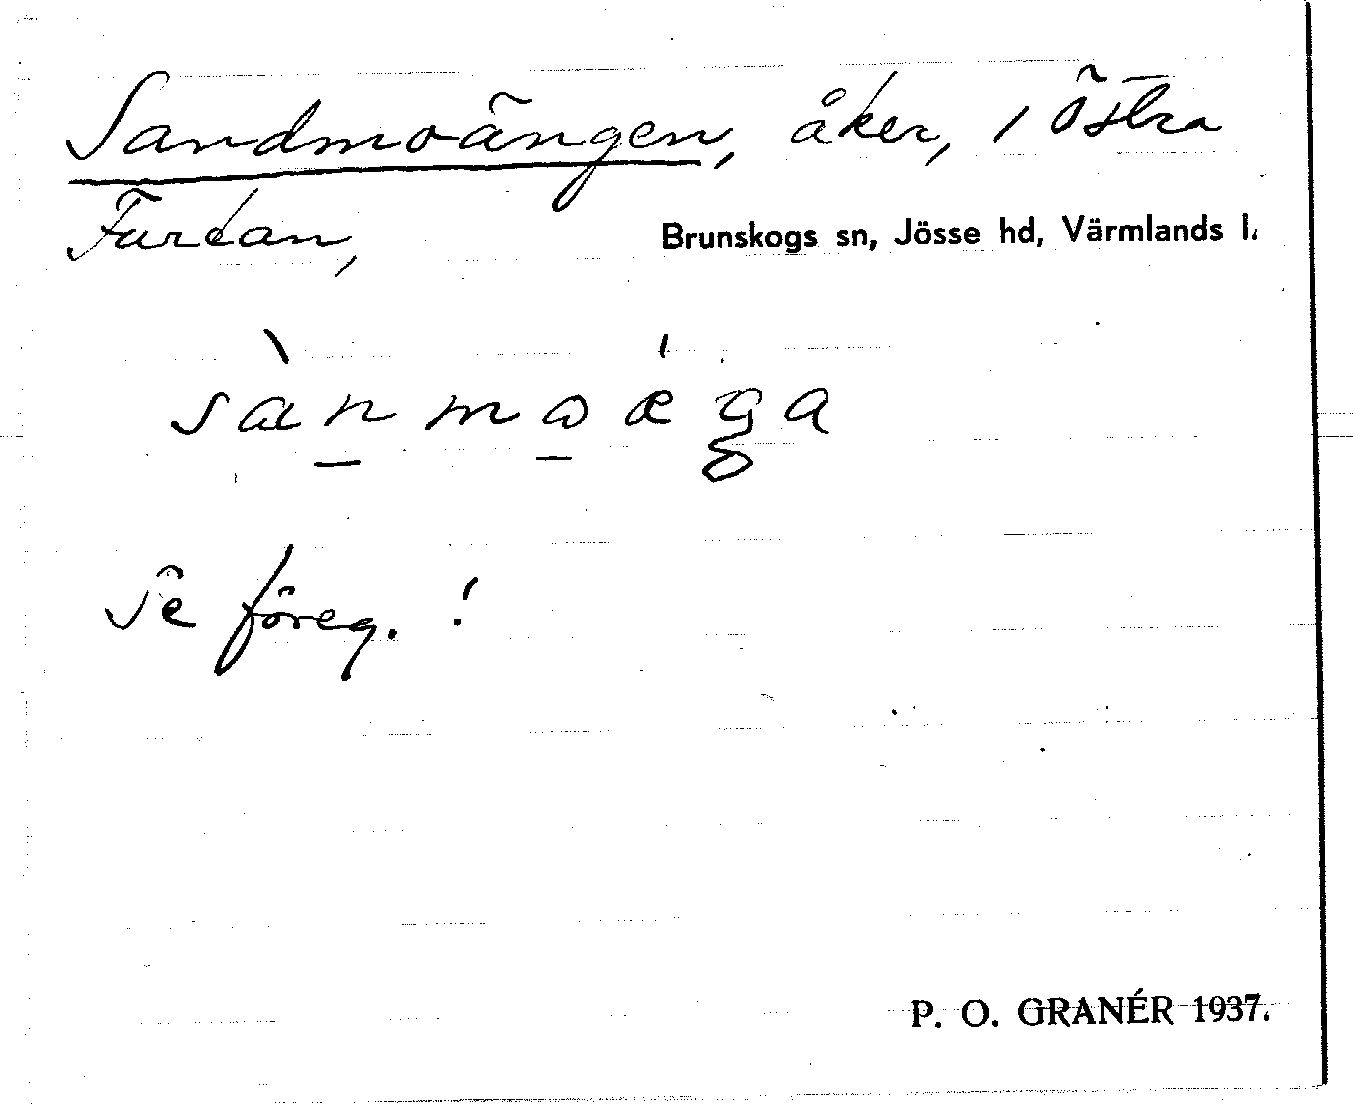 Sandmoängen, åker, i Östra
Furtan,
Brunskogs sn, Jösse hd, Värmlands l.
Se föreg. !
P. O. GRANÉR 1937.